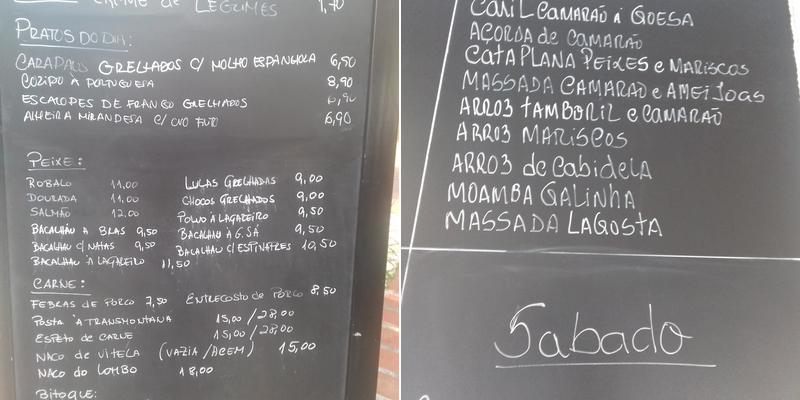 CREME DE LEGUMES 1,70
PRATOS DO DIA:
CARAPAUS GRELHADOS C/ MOLHO ESPANHOLA 6,90
COZIDO À PORTUGUESA 8,90
ESCALOPES DE FRANGO GRELHADOS 6,90
ALHEIRA MIRANDESA C/ OVO FRITO 6,90
PEIXE:
ROBALO 11,00 LULAS GRELHADAS 9,00
DOURADA 11,00 CHOCOS GRELHADOS 9,00
SALMÃO 12,00 POLVO À LAGAREIRO 9,50
BACALHAU À BRÁS 9,50 BACALHAU À G. SÁ 9,50
BACALHAU C/ NATAS 9,50 BACALHAU C/ ESPINAFRES 10,50
BACALHAU À LAGAREIRO 11,50
CARNE:
FEBRAS DE PORCO 7,50 ENTRECOSTO DE PORCO 8,50
POSTA À TRANSMONTANA 15,00 / 28,00
ESPETO DE CARNE 15,00 / 28,00
NACO DE VITELA (VAZIA/ACEM) 15,00
NACO DO LOMBO 18,00
BITOQUE:
CARIL CAMARÃO À GOESA
AÇORDA DE CAMARÃO
CATAPLANA PEIXES e MARISCOS
MASSADA CAMARÃO e AMEIJOAS
ARROZ TAMBORIL e CAMARÃO
ARROZ MARISCOS
ARROZ de Cabidela
MOAMBA GALINHA
MASSADA LAGOSTA
Sabado